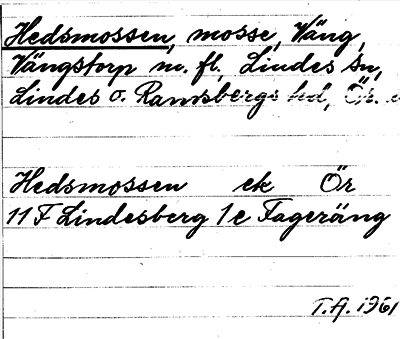 Hedsmossen, mosse, Väng,
Vängstorp m. fl. Lindes sn,
Lindes o. Ramsbergs hd, Ör.
Hedsmossen ek Ör
11 F Lindesberg 1 e Fageräng
T.A. 1961